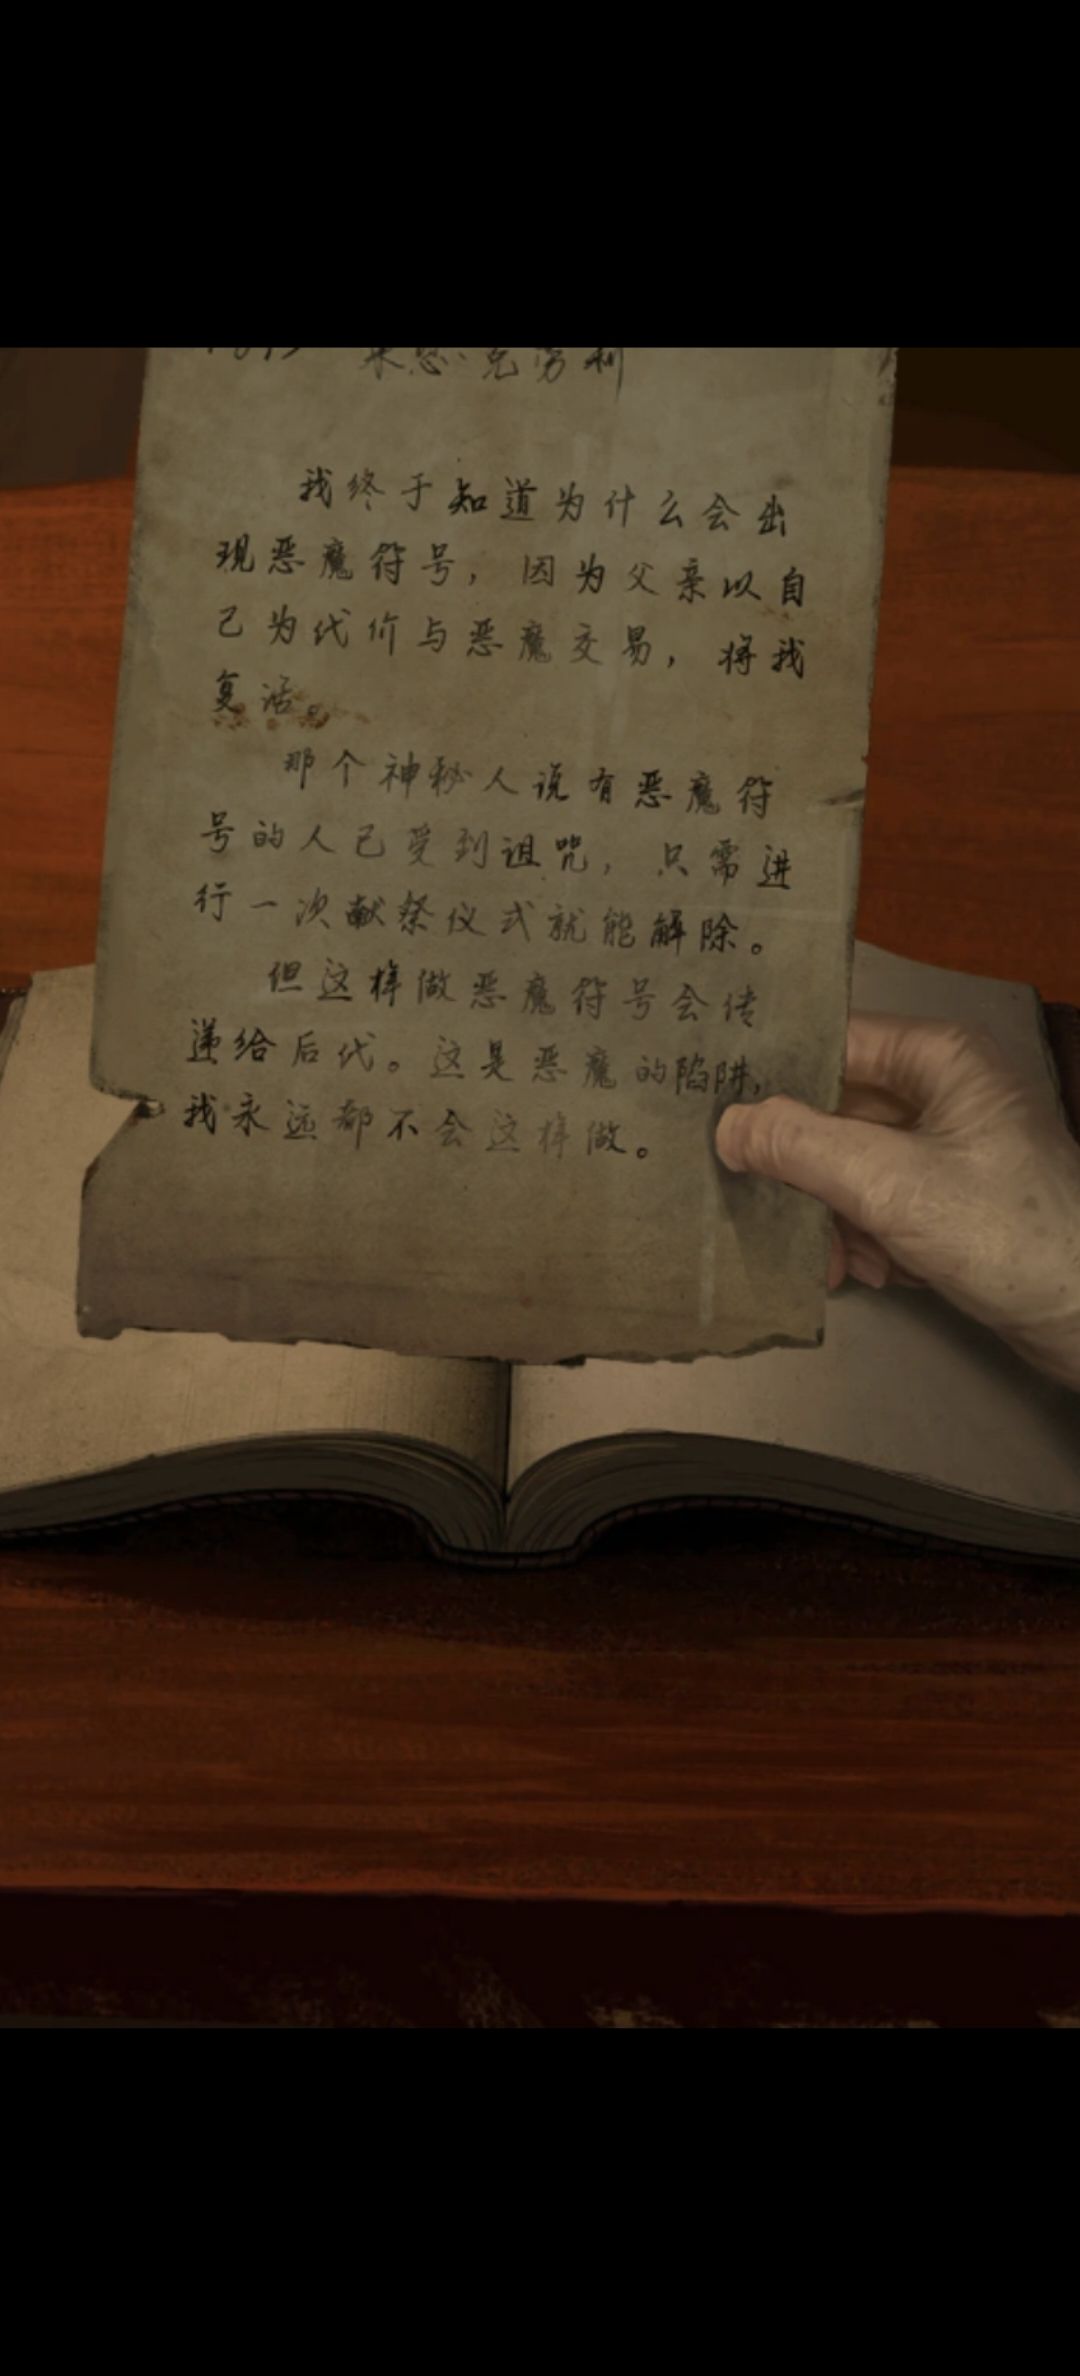 莱恩·克劳利
我终于知道为什么会出
现恶魔符号，因为父亲以自
己为代价与恶魔交易，将我
复活。
那个神秘人说有恶魔符
号的人已受到诅咒，只需进
行一次献祭仪式就能解除。
但这样做恶魔符号会传
递给后代。这是恶魔的陷阱，
我永远都不会这样做。